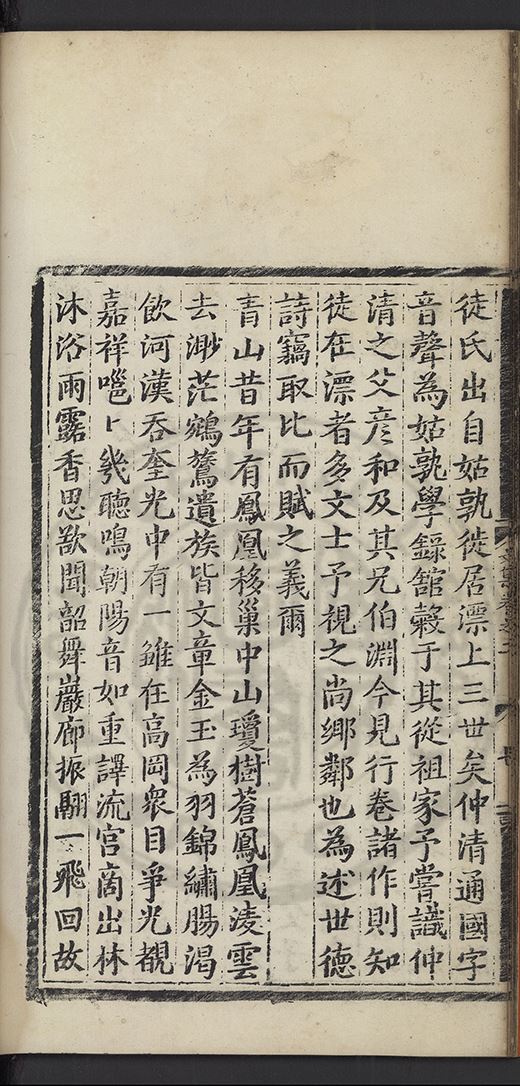 徒氏出自姑孰徙居漂上三世矣仲清通國字
音聲為姑孰學錄舘穀于其從祖家予嘗識仲
清之父彦和及其兄伯淵今見行卷諸作則知
徒在漂者多文士予視之尚鄉鄰也為述世德
詩竊取比而賦之義爾
青山昔年有鳳凰移巢中山瓊樹蒼鳳凰淩雲
去渺茫鵷鶵遺族皆文章金玉為羽錦繡腸渴
飲河漢吞奎光中有一雏在高岡衆目爭光覩
嘉祥噰卜幾聽鳴朝陽音如重譯流宫啇出林
沐浴雨露香思歆聞韶舞巖廊振翮一飛回故